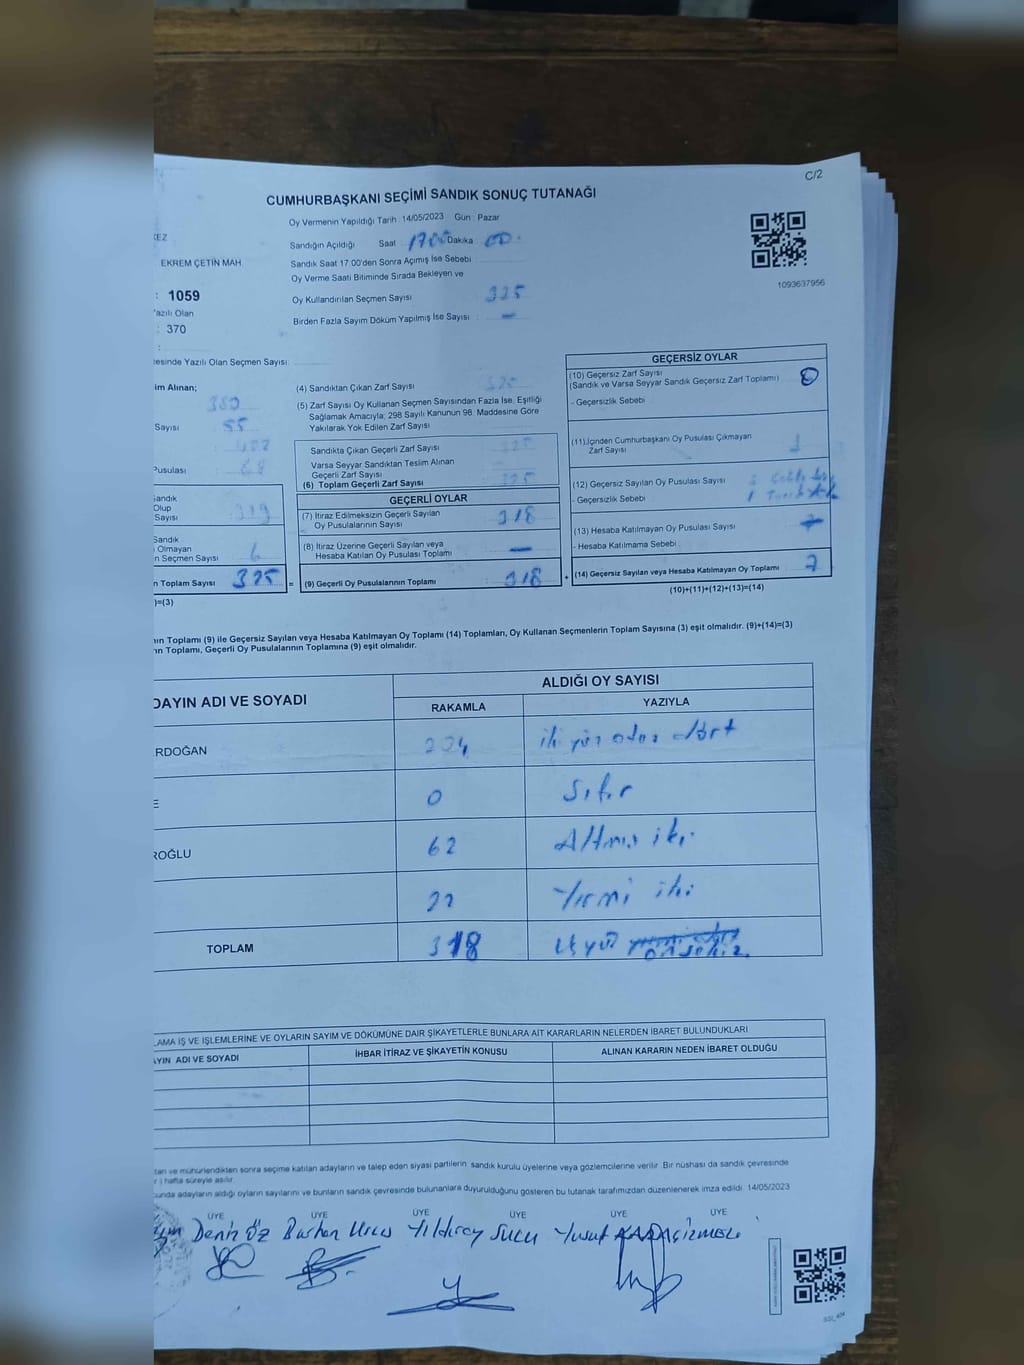 C/2
CUMHURBAŞKANI SEÇİMİ SANDIK SONUÇ TUTANAĞI
Oy Vermenin Yapıldığı Tarih :14/05/2023 Gün : Pazar
Sandığın Açıldığı Saat : 1700 Dakika : 00
EKREM ÇETİN MAH.
Sandık Saat 17:00'den Sonra Açımış İse Sebebi :
Oy Verme Saati Bitiminde Sırada Bekleyen ve
: 1059
Oy Kullandırılan Seçmen Sayısı : 325
1093637956
Yazılı Olan
: 370
Birden Fazla Sayım Döküm Yapılmış İse Sayısı : -
esinde Yazılı Olan Seçmen Sayısı:
im Alınan;
380
Sayısı : 55
Pusulası
andık
Olup
Sayısı : 319
Sandık
Olmayan
n Seçmen Sayısı : 6
n Toplam Sayısı 325 =
)=(3)
(4) Sandıktan Çıkan Zarf Sayısı : 325
(5) Zarf Sayısı Oy Kullanan Seçmen Sayısından Fazla İse, Eşitliği
Sağlamak Amacıyla; 298 Sayılı Kanunun 98. Maddesine Göre
Yakılarak Yok Edilen Zarf Sayısı
Sandıkta Çıkan Geçerli Zarf Sayısı : 325
Varsa Seyyar Sandıktan Teslim Alınan
Geçerli Zarf Sayısı
(6) Toplam Geçerli Zarf Sayısı : 325
GEÇERLİ OYLAR
(7) İtiraz Edilmeksizin Geçerli Sayılan
Oy Pusulalarının Sayısı : 318
(8) İtiraz Üzerine Geçerli Sayılan veya
Hesaba Katılan Oy Pusulası Toplamı : -
(9) Geçerli Oy Pusulalarının Toplamı : 318 +
GEÇERSİZ OYLAR
(10) Geçersiz Zarf Sayısı
(Sandık ve Varsa Seyyar Sandık Geçersiz Zarf Toplamı) : 0
- Geçersizlik Sebebi :
(11) İçinden Cumhurbaşkanı Oy Pusulası Çıkmayan
Zarf Sayısı :
(12) Geçersiz Sayılan Oy Pusulası Sayısı :
- Geçersizlik Sebebi :
(13) Hesaba Katılmayan Oy Pusulası Sayısı :
- Hesaba Katılmama Sebebi :
(14) Geçersiz Sayılan veya Hesaba Katılmayan Oy Toplamı : 7
(10)+(11)+(12)+(13)=(14)
ın Toplamı (9) ile Geçersiz Sayılan veya Hesaba Katılmayan Oy Toplamı (14) Toplamları, Oy Kullanan Seçmenlerin Toplam Sayısına (3) eşit olmalıdır. (9)+(14)=(3)
n Toplamı, Geçerli Oy Pusulalarının Toplamına (9) eşit olmalıdır.
DAYIN ADI VE SOYADI
ALDIĞI OY SAYISI
RAKAMLA YAZIYLA
RDOĞAN 234 iki yüz otuz dört
E 0 Sıfır
ROĞLU 62 Altmış iki
22 Yirmi iki
TOPLAM 318 üç yüz on sekiz
LAMA İŞ VE İŞLEMLERİNE VE OYLARIN SAYIM VE DÖKÜMÜNE DAİR ŞİKAYETLERLE BUNLARA AİT KARARLARIN NELERDEN İBARET BULUNDUKLARI
AYIN ADI VE SOYADI İHBAR İTİRAZ VE ŞİKAYETİN KONUSU ALINAN KARARIN NEDEN İBARET OLDUĞU
tan ve mühürlendikten sonra seçime katılan adayların ve talep eden siyasi partilerin, sandık kurulu üyelerine veya gözlemcilerine verilir. Bir nüshası da sandık çevresinde
r ) hafta süreyle asılır.
unda adayların aldığı oyların sayılarını ve bunların sandık çevresinde bulunanlara duyurulduğunu gösteren bu tutanak tarafımızdan düzenlenerek imza edildi. 14/05/2023
ÜYE ÜYE ÜYE ÜYE ÜYE ÜYE
Deniz Öz Burhan Yıldıray SUCU Yusuf KARAÇİZMELİ